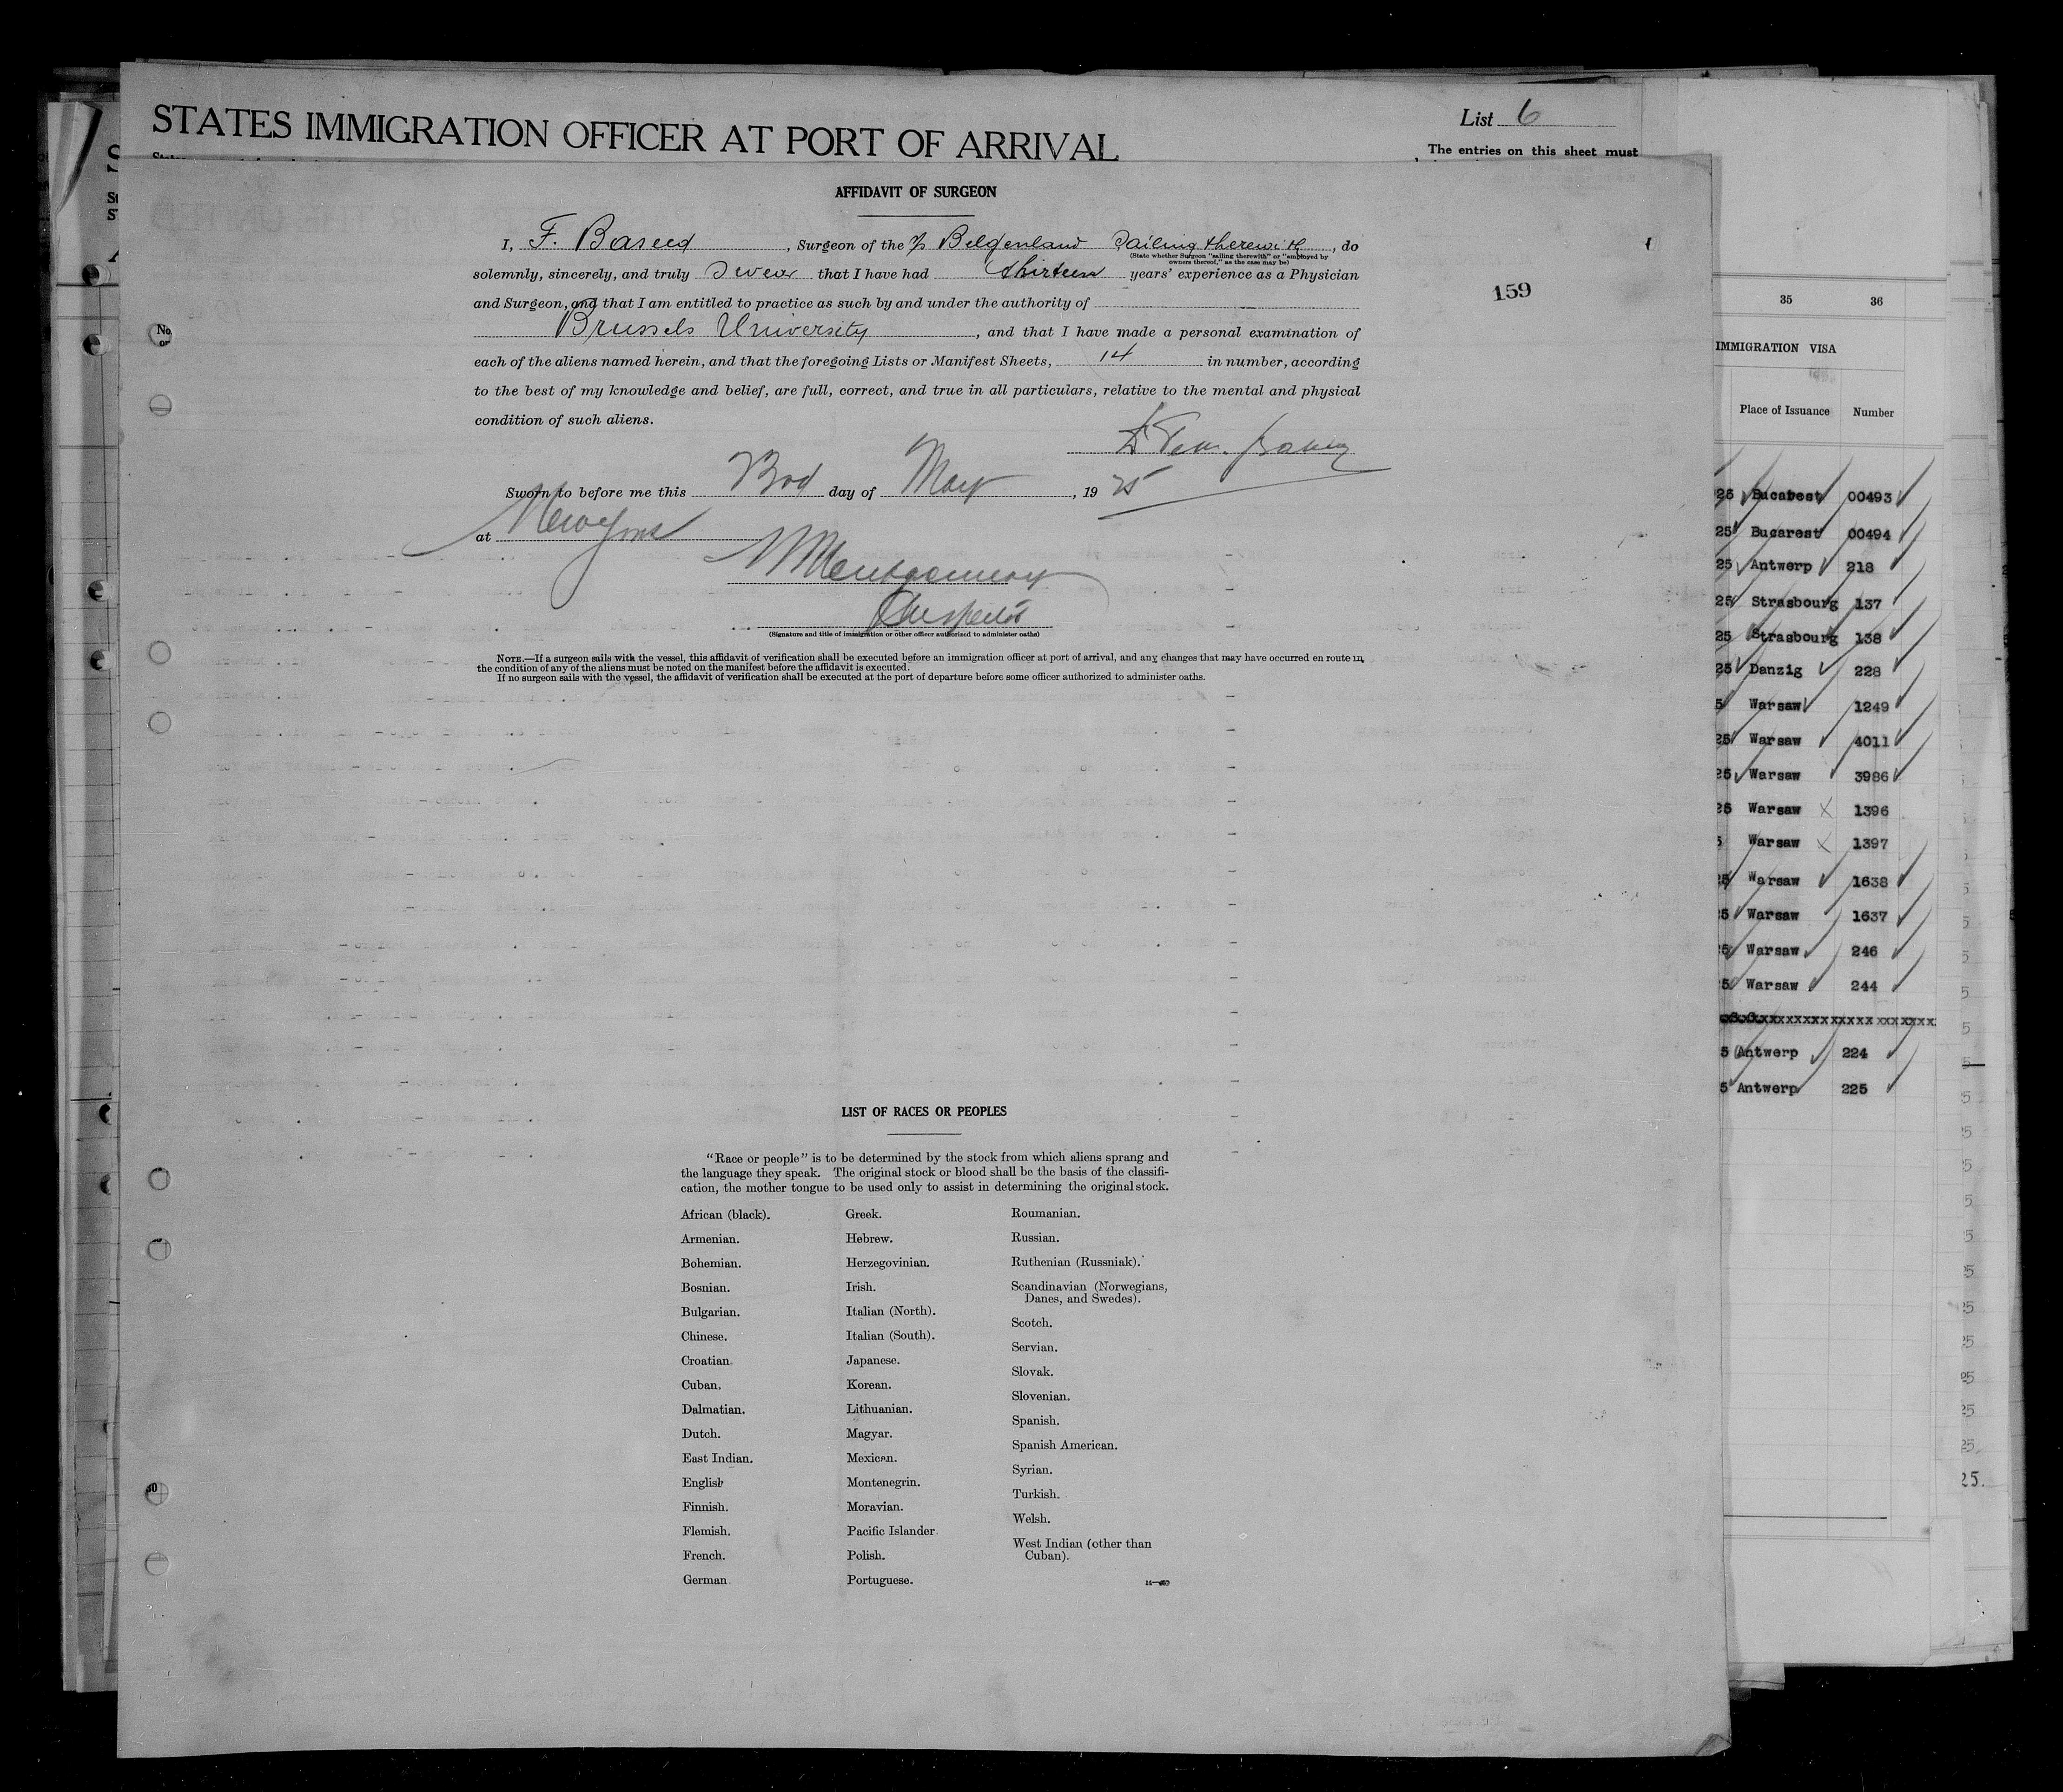 STATES IMMIGRATION OFFICER AT PORT OF ARRIVAL
List 6
The entries on this sheet must
AFFIDAVIT OF SURGEON
I, F. Baseed, Surgeon of the Belgenland Sailing therewith, do
(State whether Surgeon "sailing therewith" or "employed by
owners thereof," as the case may be)
solemnly, sincerely, and truly swear that I have had thirteen years' experience as a Physician
and Surgeon, and that I am entitled to practice as such by and under the authority of
Brussels University, and that I have made a personal examination of
each of the aliens named herein, and that the foregoing Lists or Manifest Sheets, 14 in number, according
to the best of my knowledge and belief, are full, correct, and true in all particulars, relative to the mental and physical
condition of such aliens.
159
Sworn to before me this 3rd day of May, 1925
at New York
Montgomery
Inspector
(Signature and title of immigration or other officer authorized to administer oaths)
NOTE.—If a surgeon sails with the vessel, this affidavit of verification shall be executed before an immigration officer at port of arrival, and any changes that may have occurred en route in
the condition of any of the aliens must be noted on the manifest before the affidavit is executed.
If no surgeon sails with the vessel, the affidavit of verification shall be executed at the port of departure before some officer authorized to administer oaths.
LIST OF RACES OR PEOPLES
"Race or people" is to be determined by the stock from which aliens sprang and
the language they speak. The original stock or blood shall be the basis of the classifi-
cation, the mother tongue to be used only to assist in determining the original stock.
African (black).
Armenian.
Bohemian.
Bosnian.
Bulgarian.
Chinese.
Croatian.
Cuban.
Dalmatian.
Dutch.
East Indian.
English
Finnish.
Flemish.
French.
German.
Greek.
Hebrew.
Herzegovinian.
Irish.
Italian (North).
Italian (South).
Japanese.
Korean.
Lithuanian.
Magyar.
Mexican.
Montenegrin.
Moravian.
Pacific Islander
Polish.
Portuguese.
Roumanian.
Russian.
Ruthenian (Russniak).
Scandinavian (Norwegians,
Danes, and Swedes).
Scotch.
Servian.
Slovak.
Slovenian.
Spanish.
Spanish American.
Syrian.
Turkish.
Welsh.
West Indian (other than
Cuban).
35 36
IMMIGRATION VISA
Place of Issuance Number
25 Bucarest 00493
25 Bucarest 00494
25 Antwerp 218
25 Strasbourg 137
25 Strasbourg 138
25 Danzig 228
5 Warsaw 1249
25 Warsaw 4011
25 Warsaw 3986
25 Warsaw X 1396
5 Warsaw X 1397
25 Warsaw 1638
5 Warsaw 1637
5 Warsaw 246
5 Warsaw 244
5 Antwerp 224
5 Antwerp 225